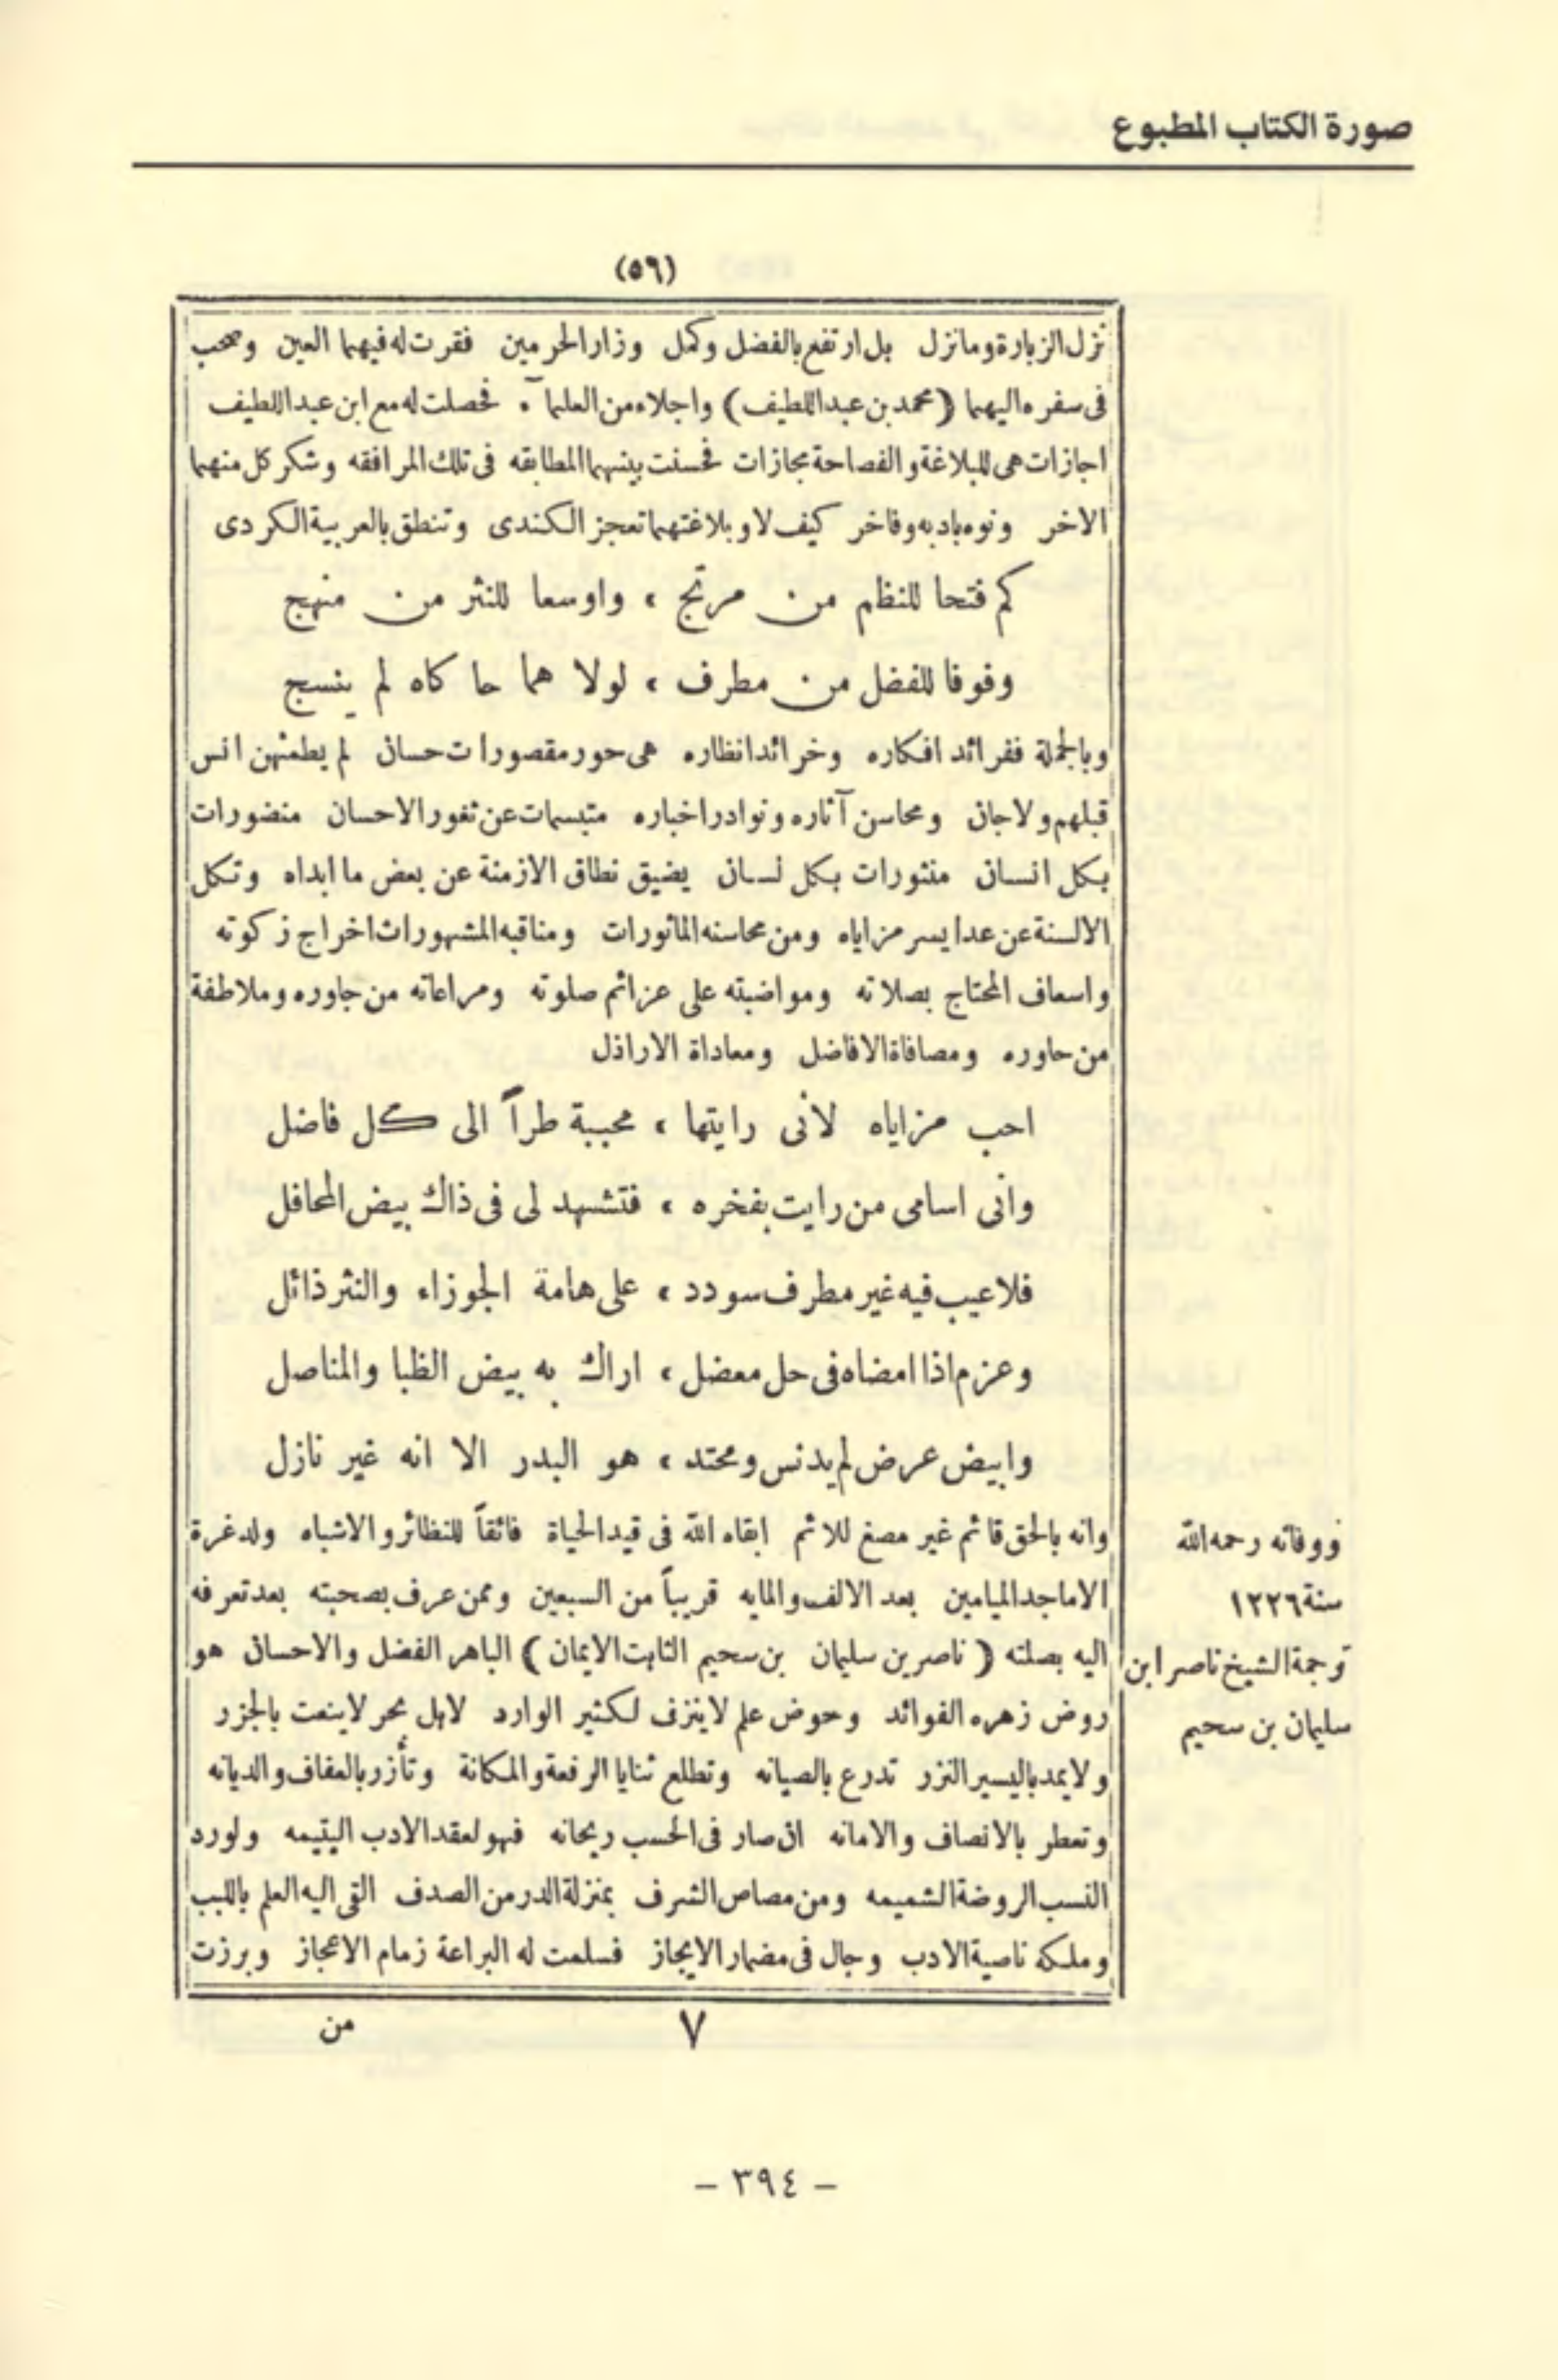 صورة الكتاب المطبوع
(٥٦)
نزل الزبارة ومانزل بل ارتفع بالفضل وكمل وزار الحرمين فقرت له فيهما العين وصحب
فى سفره اليهما (محمد بن عبد اللطيف) واجلاء من العلمآء فحصلت له مع ابن عبد اللطيف
اجازات هى للبلاغة والفصاحة مجازات فحسنت بينهما المطابقه فى تلك المرافقه وشكر كل منهما
الاخر ونوه بادبه وفاخر كيف لا وبلاغتهما تعجز الكندى وتنطق بالعربية الكردى
كم فتحا للنظم من مرتج ، واوسعا للنثر من منهج
وفوفا للفضل من مطرف ، لولا هما حا كاه لم ينسج
وبالجملة ففرائد افكاره وخرائد انظاره هى حور مقصورات حسان لم يطمثهن انس
قبلهم ولا جان ومحاسن آثاره ونوادر اخباره متبسمات عن ثغور الاحسان منضورات
بكل انسان منثورات بكل لسان يضيق نطاق الازمنة عن بعض ما ابداه وتكل
الالسنة عن عد ايسر مزاياه ومن محاسنه المأثورات ومناقبه المشهورات اخراج زكوته
واسعاف المحتاج بصلاته ومواضبته على عزائم صلوته ومراعاته من جاوره وملاطفة
من حاوره ومصافاة الافاضل ومعاداة الاراذل
احب مزاياه لأنى رايتها ، محببة طراً الى كل فاضل
وانى اسامى من رايت بفخره ، فتشهد لى فى ذاك بيض المحافل
فلا عيب فيه غير مطرف سودد ، على هامة الجوزاء والنثر ذائل
وعزم اذا امضاه فى حل معضل ، اراك به بيض الظبا والمناصل
وابيض عرض لم يدنس ومحتد ، هو البدر الا انه غير نازل
وانه بالحق قائم غير مصغ للائم ابقاه الله فى قيد الحياة فائقاً للنظائر والاشباه ولد غرة
الاماجد الميامين بعد الالف والمايه قريباً من السبعين وممن عرف بصحبته بعد تعرفه
اليه بصلته ( ناصر بن سليمان بن سحيم الثابت الايمان ) الباهر الفضل والاحسان هو
روض زهره الفوائد وحوض علم لا ينزف لكثير الوارد لا بل بحر لا ينعت بالجزر
ولا يمد باليسير النزر تدرع بالصيانه وتطلع ثنايا الرفعة والمكانة وتأزر بالعفاف والديانه
وتعطر بالانصاف والامانه ان صار فى الحسب ريحانه فهو لعقد الادب اليتيمه ولورد
النسب الروضة الشميمه ومن مصاص الشرف بمنزلة الدر من الصدف القى اليه العلم باللبب
وملكه ناصية الادب وجال فى مضمار الايجاز فسلمت له البراعة زمام الاعجاز وبرزت
ووفاته رحمه الله
سنة ١٢٢٦
ترجمة الشيخ ناصر ابن
سليمان بن سحيم
٧
من
- ٣٩٤ -